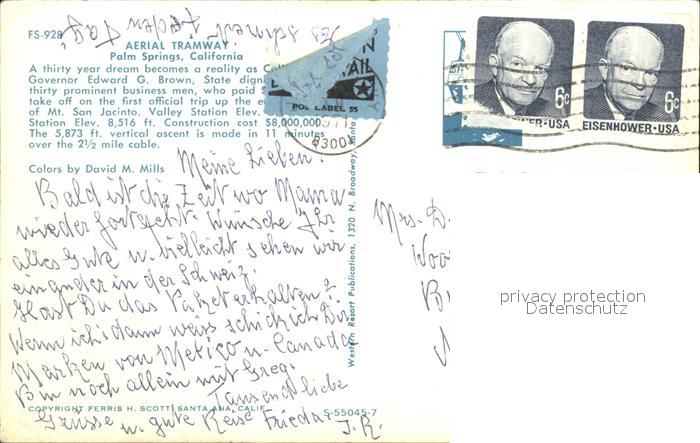 FS-928
AERIAL TRAMWAY
Palm Springs, California
A thirty year dream becomes a reality as
Governor Edward G. Brown, State
thirty prominent business men, who paid
take off on the first official trip up the
of Mt. San Jacinto. Valley Station Elev.
Station Elev. 8,516 ft. Construction cost $8,000,000.
The 5,873 ft. vertical ascent is made in 11 minutes
over the 2½ mile cable.
Colors by David M. Mills
POD LABEL 35
8300
6c
EISENHOWER·USA
6c
EISENHOWER·USA
Meine Lieben!
Bald ist die Zeit wo Mama
wieder fortgeht. Wünsche Ihr
alles Gute u. vielleicht sehen wir
einander in der Schweiz.
Hast Du das Paket erhalten?
Wenn ich dann weiss schick ich Dir
Marken von Mexico u. Canada
Bin noch allein mit Greg.
Tausend liebe
Grüsse u. gute Reise Frieda
J.R.
jeden Tag!
COPYRIGHT FERRIS H. SCOTT, SANTA ANA, CALIF.
S-55045-7
Western Resort Publications, 1320 N. Broadway, Santa
Mrs. D.
privacy protection
Datenschutz